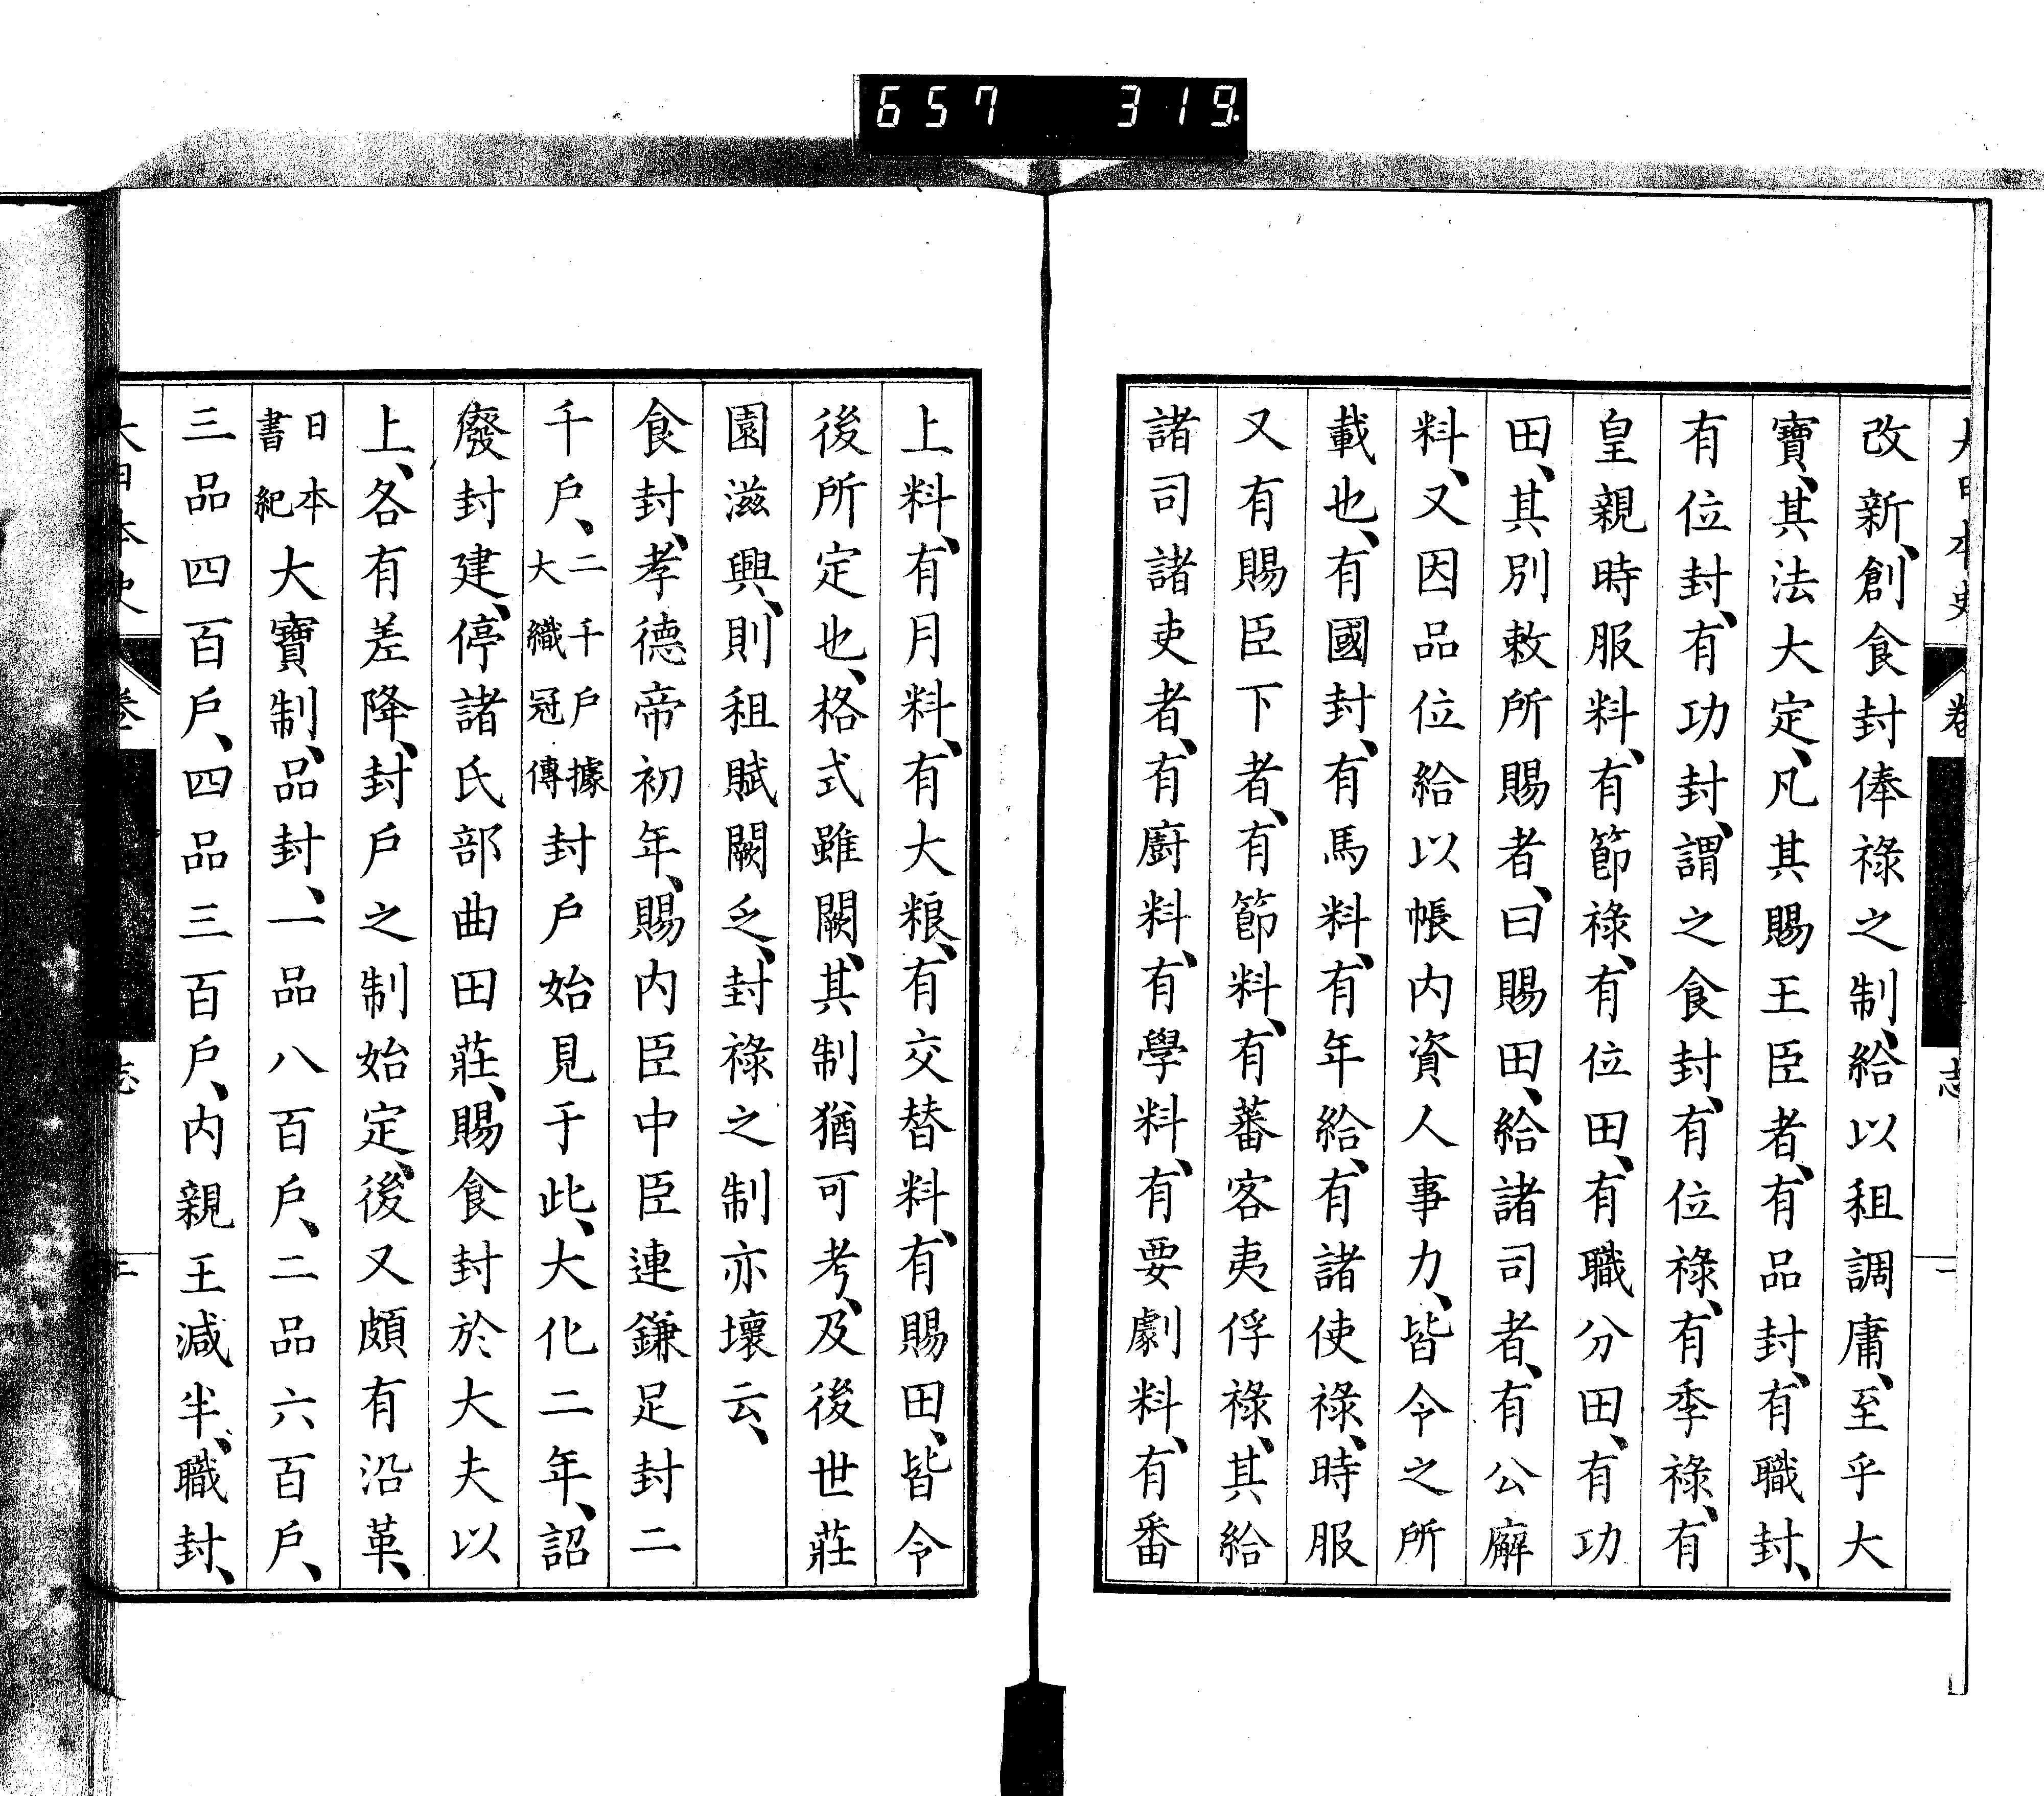 657 319
大日本史 卷 志
改新、創食封俸祿之制、給以租調庸、至乎大
寶、其法大定、凡其賜王臣者、有品封、有職封、
有位封、有功封、謂之食封、有位祿、有季祿、有
皇親時服料、有節祿、有位田、有職分田、有功
田、其別敕所賜者、曰賜田、給諸司者、有公廨
料、又因品位給以帳內資人事力、皆令之所
載也、有國封、有馬料、有年給、有諸使祿、時服
又有賜臣下者、有節料、有蕃客夷俘祿、其給
諸司諸吏者、有廚料、有學料、有要劇料、有番
上料、有月料、有大粮、有交替料、有賜田、皆令
後所定也、格式雖闕、其制猶可考、及後世莊
園滋興、則租賦闕乏、封祿之制亦壞云、
食封、孝德帝初年、賜內臣中臣連鎌足封二
千戶、二千戶據大織冠傳封戶始見于此、大化二年、詔
廢封建、停諸氏部曲田莊、賜食封於大夫以
上、各有差降、封戶之制始定、後又頗有沿革、
日本書紀大寶制、品封、一品八百戶、二品六百戶、
三品四百戶、四品三百戶、內親王減半、職封、
大日本史 卷 志